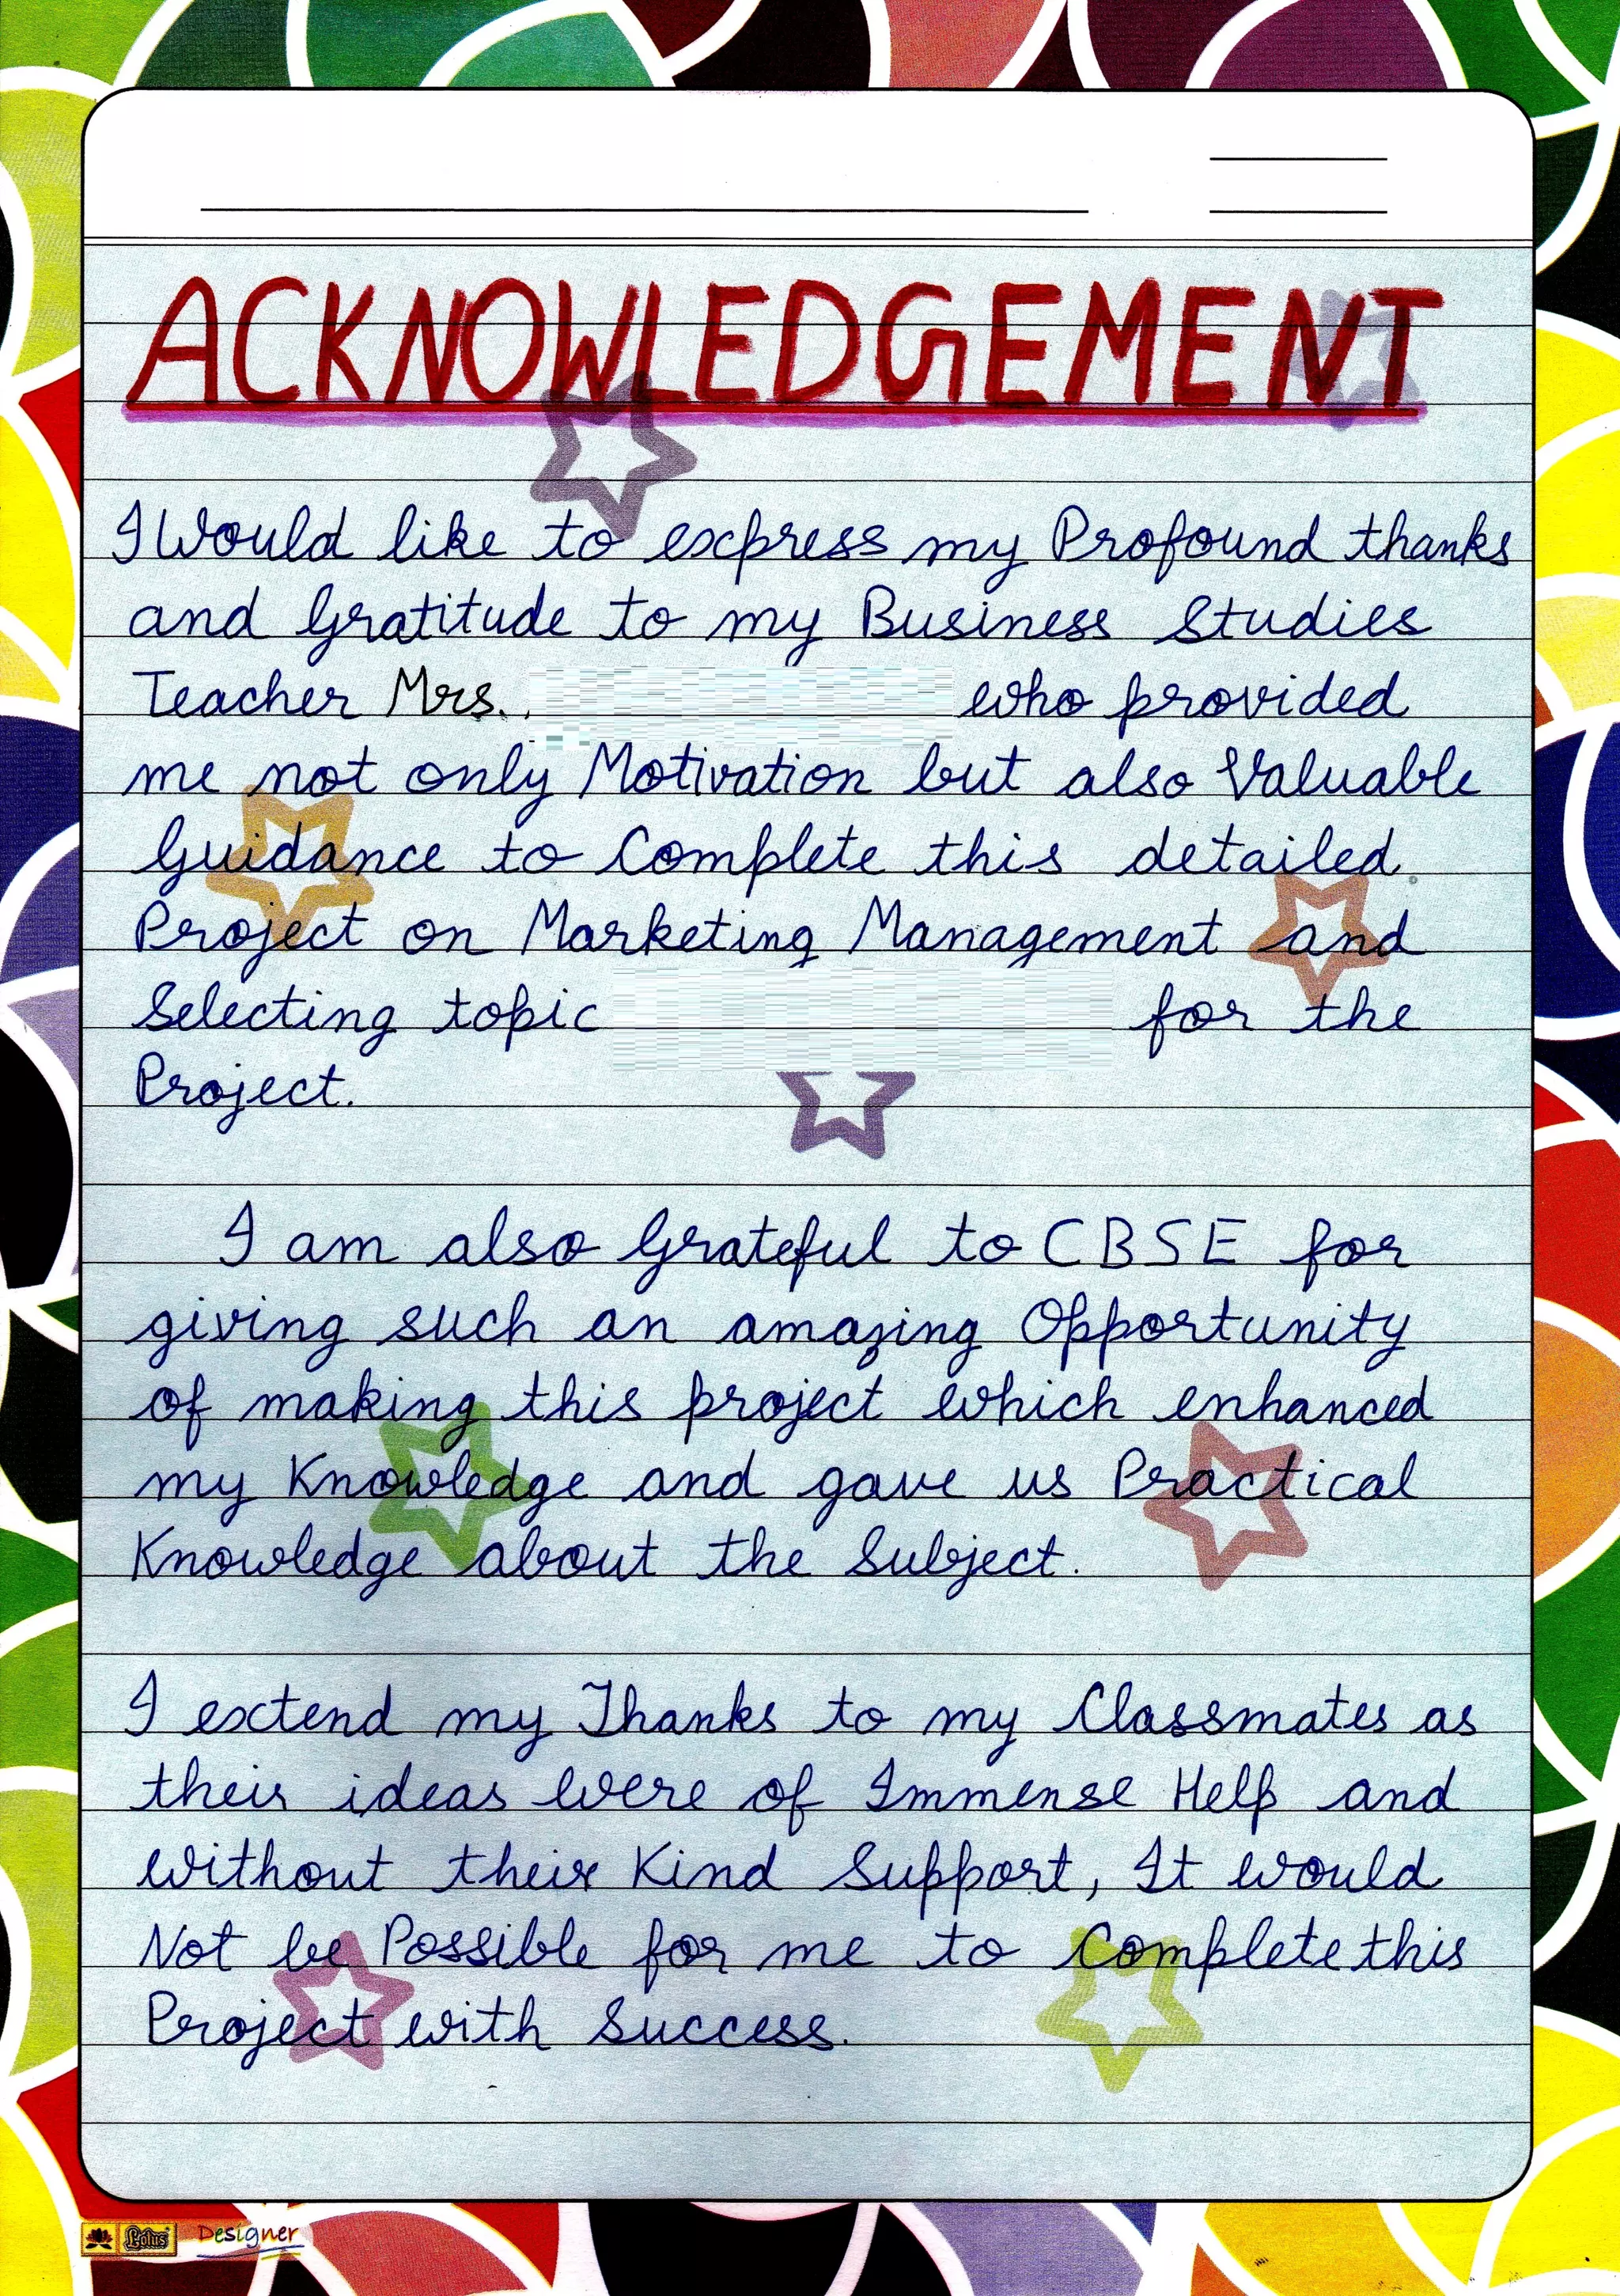 ACKNOWLEDGEMENT
I Would like to express my Profound thanks
and Gratitude to my Business Studies
Teacher Mrs. who provided
me not only Motivation but also Valuable
Guidance to Complete this detailed
Project on Marketing Management and
Selecting topic for the
Project.
I am also Grateful to CBSE for
giving such an amazing Opportunity
of making this project which enhanced
my Knowledge and gave us Practical
Knowledge about the Subject.
I extend my Thanks to my Classmates as
their ideas were of Immense Help and
without their Kind Support, It would
Not be Possible for me to Complete this
Project with Success.
Lotus Designer